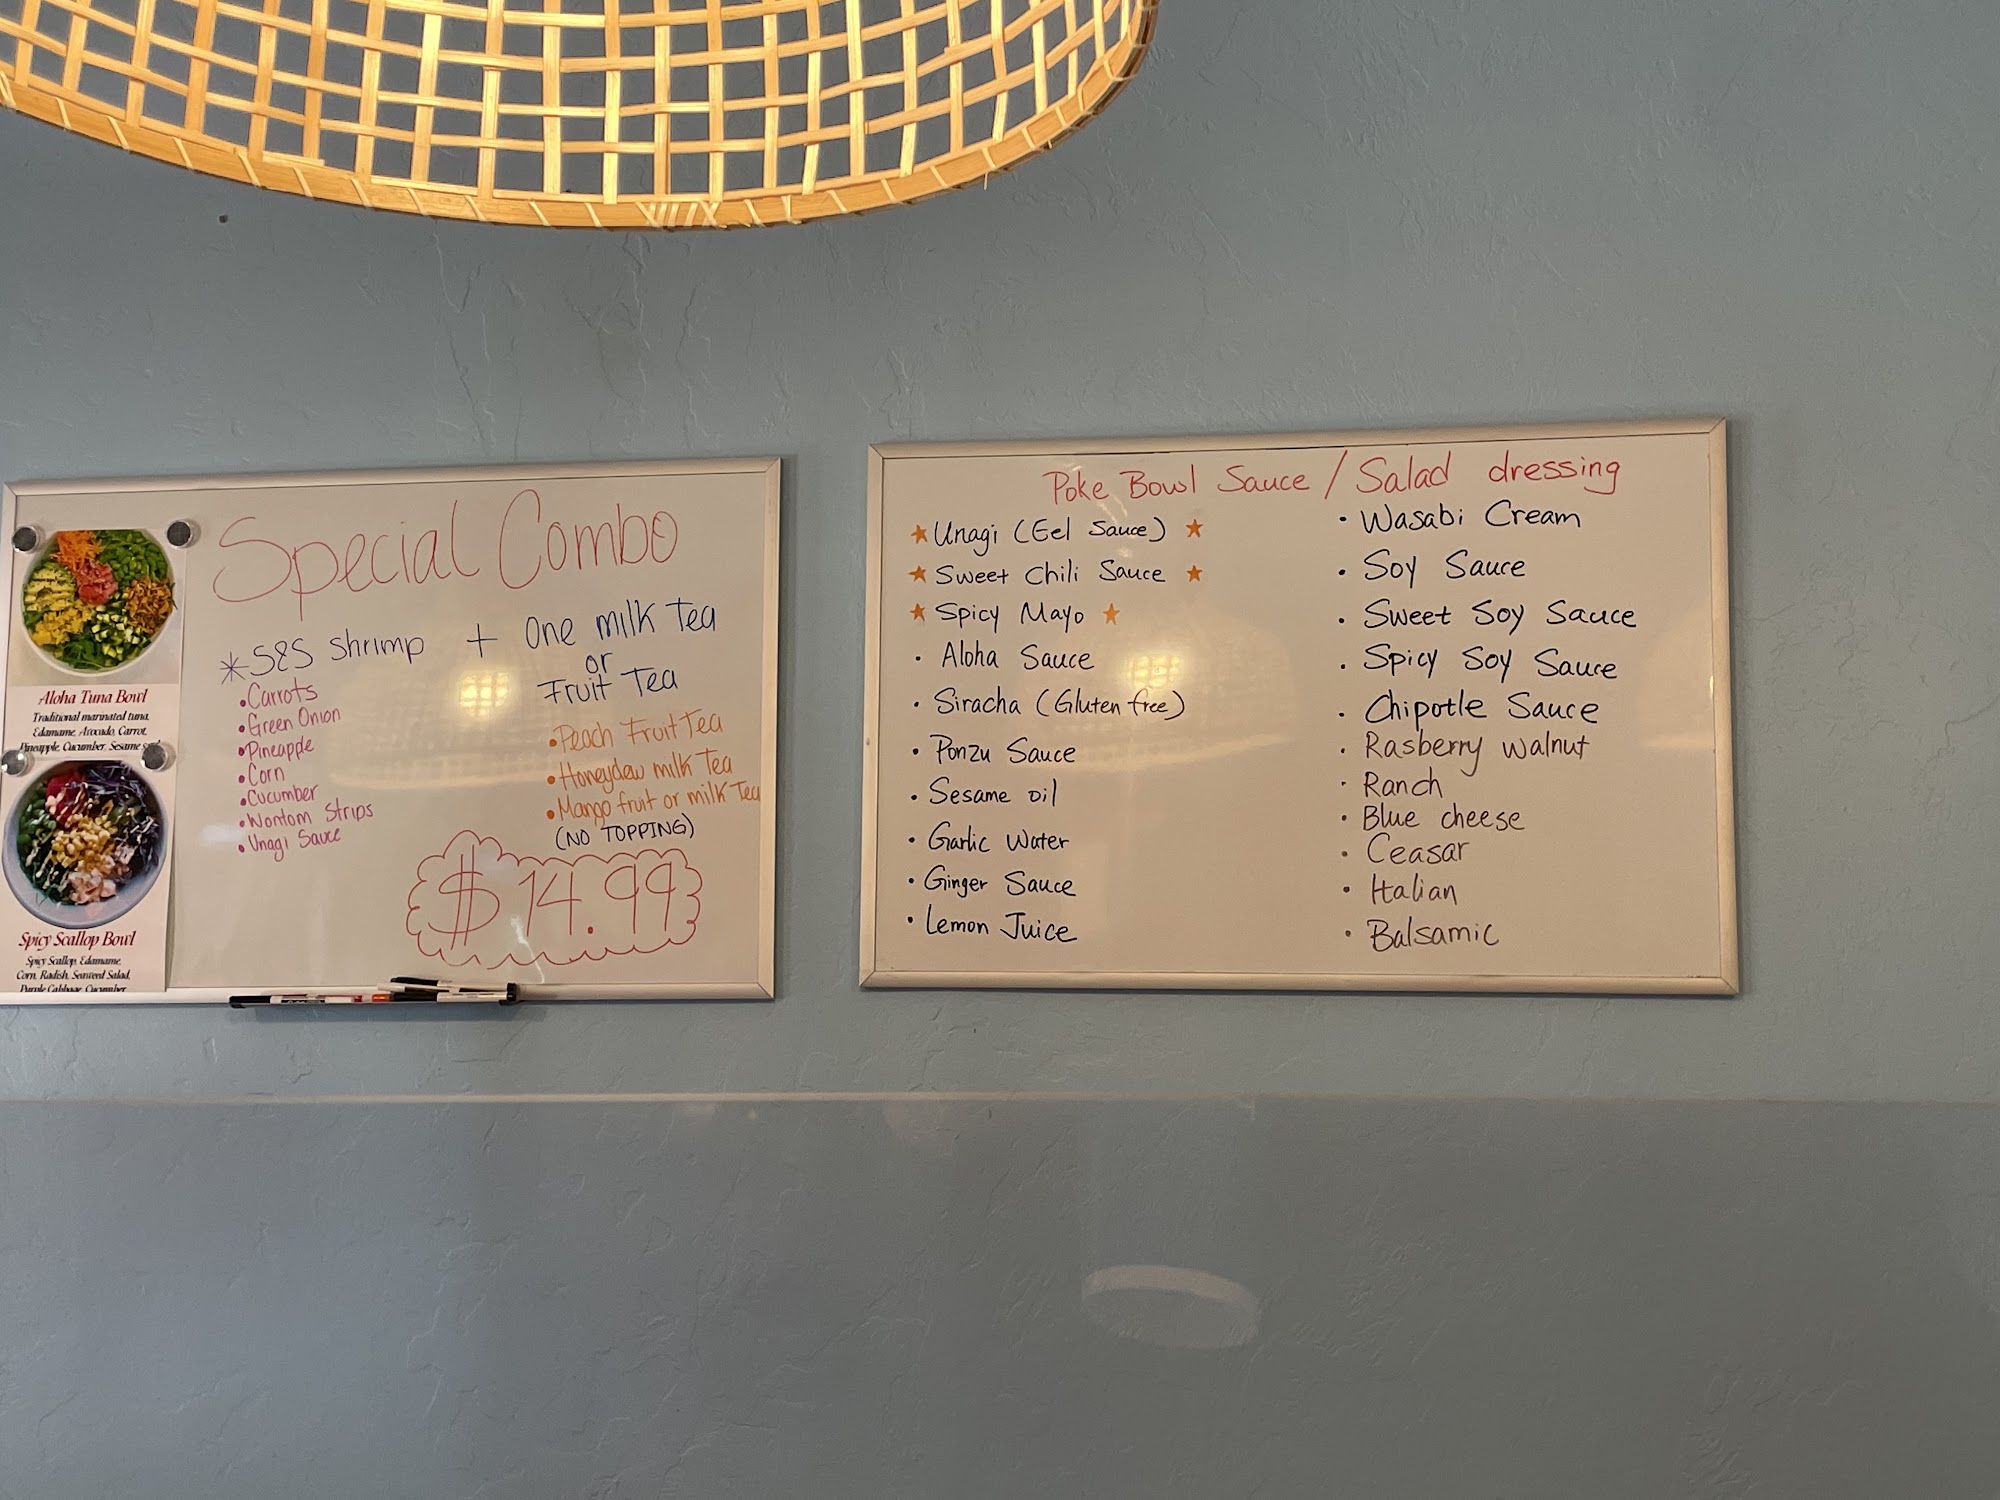 Special Combo
*S&S Shrimp + One milk Tea
or
Fruit Tea
•Carrots
•Green Onion
•Pineapple
•Corn
•Cucumber
•Wontom Strips
•Unagi Sauce
•Peach Fruit Tea
•Honeydew milk Tea
•Mango fruit or milk Tea
(NO TOPPING)
$14.99
Aloha Tuna Bowl
Traditional marinated tuna,
Edamame, Avocado, Carrot,
Pineapple, Cucumber, Sesame
Spicy Scallop Bowl
Spicy Scallop, Edamame,
Corn, Radish, Seaweed Salad,
Purple Cabbage, Cucumber
Poke Bowl Sauce / Salad dressing
★Unagi (Eel Sauce) ★
★Sweet Chili Sauce ★
★Spicy Mayo ★
• Aloha Sauce
• Siracha (Gluten free)
• Ponzu Sauce
• Sesame oil
• Garlic Water
• Ginger Sauce
• Lemon Juice
• Wasabi Cream
• Soy Sauce
• Sweet Soy Sauce
• Spicy Soy Sauce
• Chipotle Sauce
• Rasberry walnut
• Ranch
• Blue cheese
• Ceasar
• Italian
• Balsamic